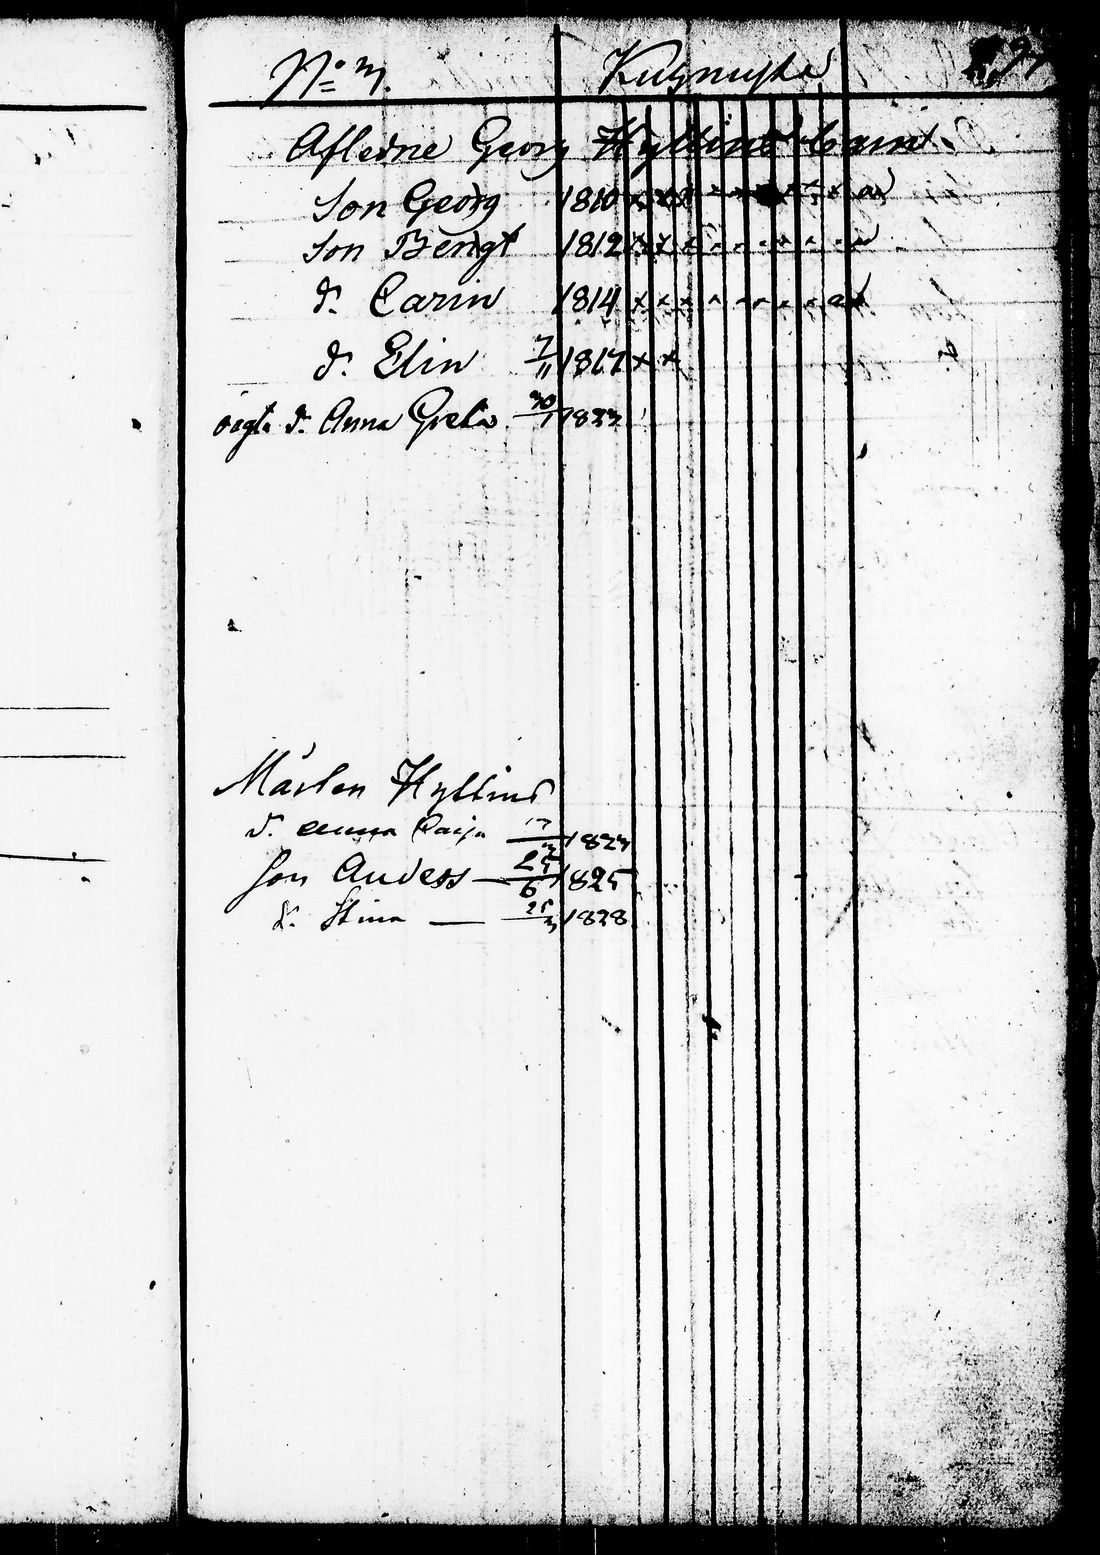 No 3. Kuznujka 97
Afledne Georg Hyltins barn
Son Georg 1810 x x x
Son Bengt 1812 x x x
d. Carin 1814 x x x
d. Elin 7/11 1817 x x
oägta d. Anna Greta 30/7 1823
Mårten Hyltins
d. Anna Caisa 17/3 1823
Son Anders — 25/6 1825
d. Stina — 25/3 1828